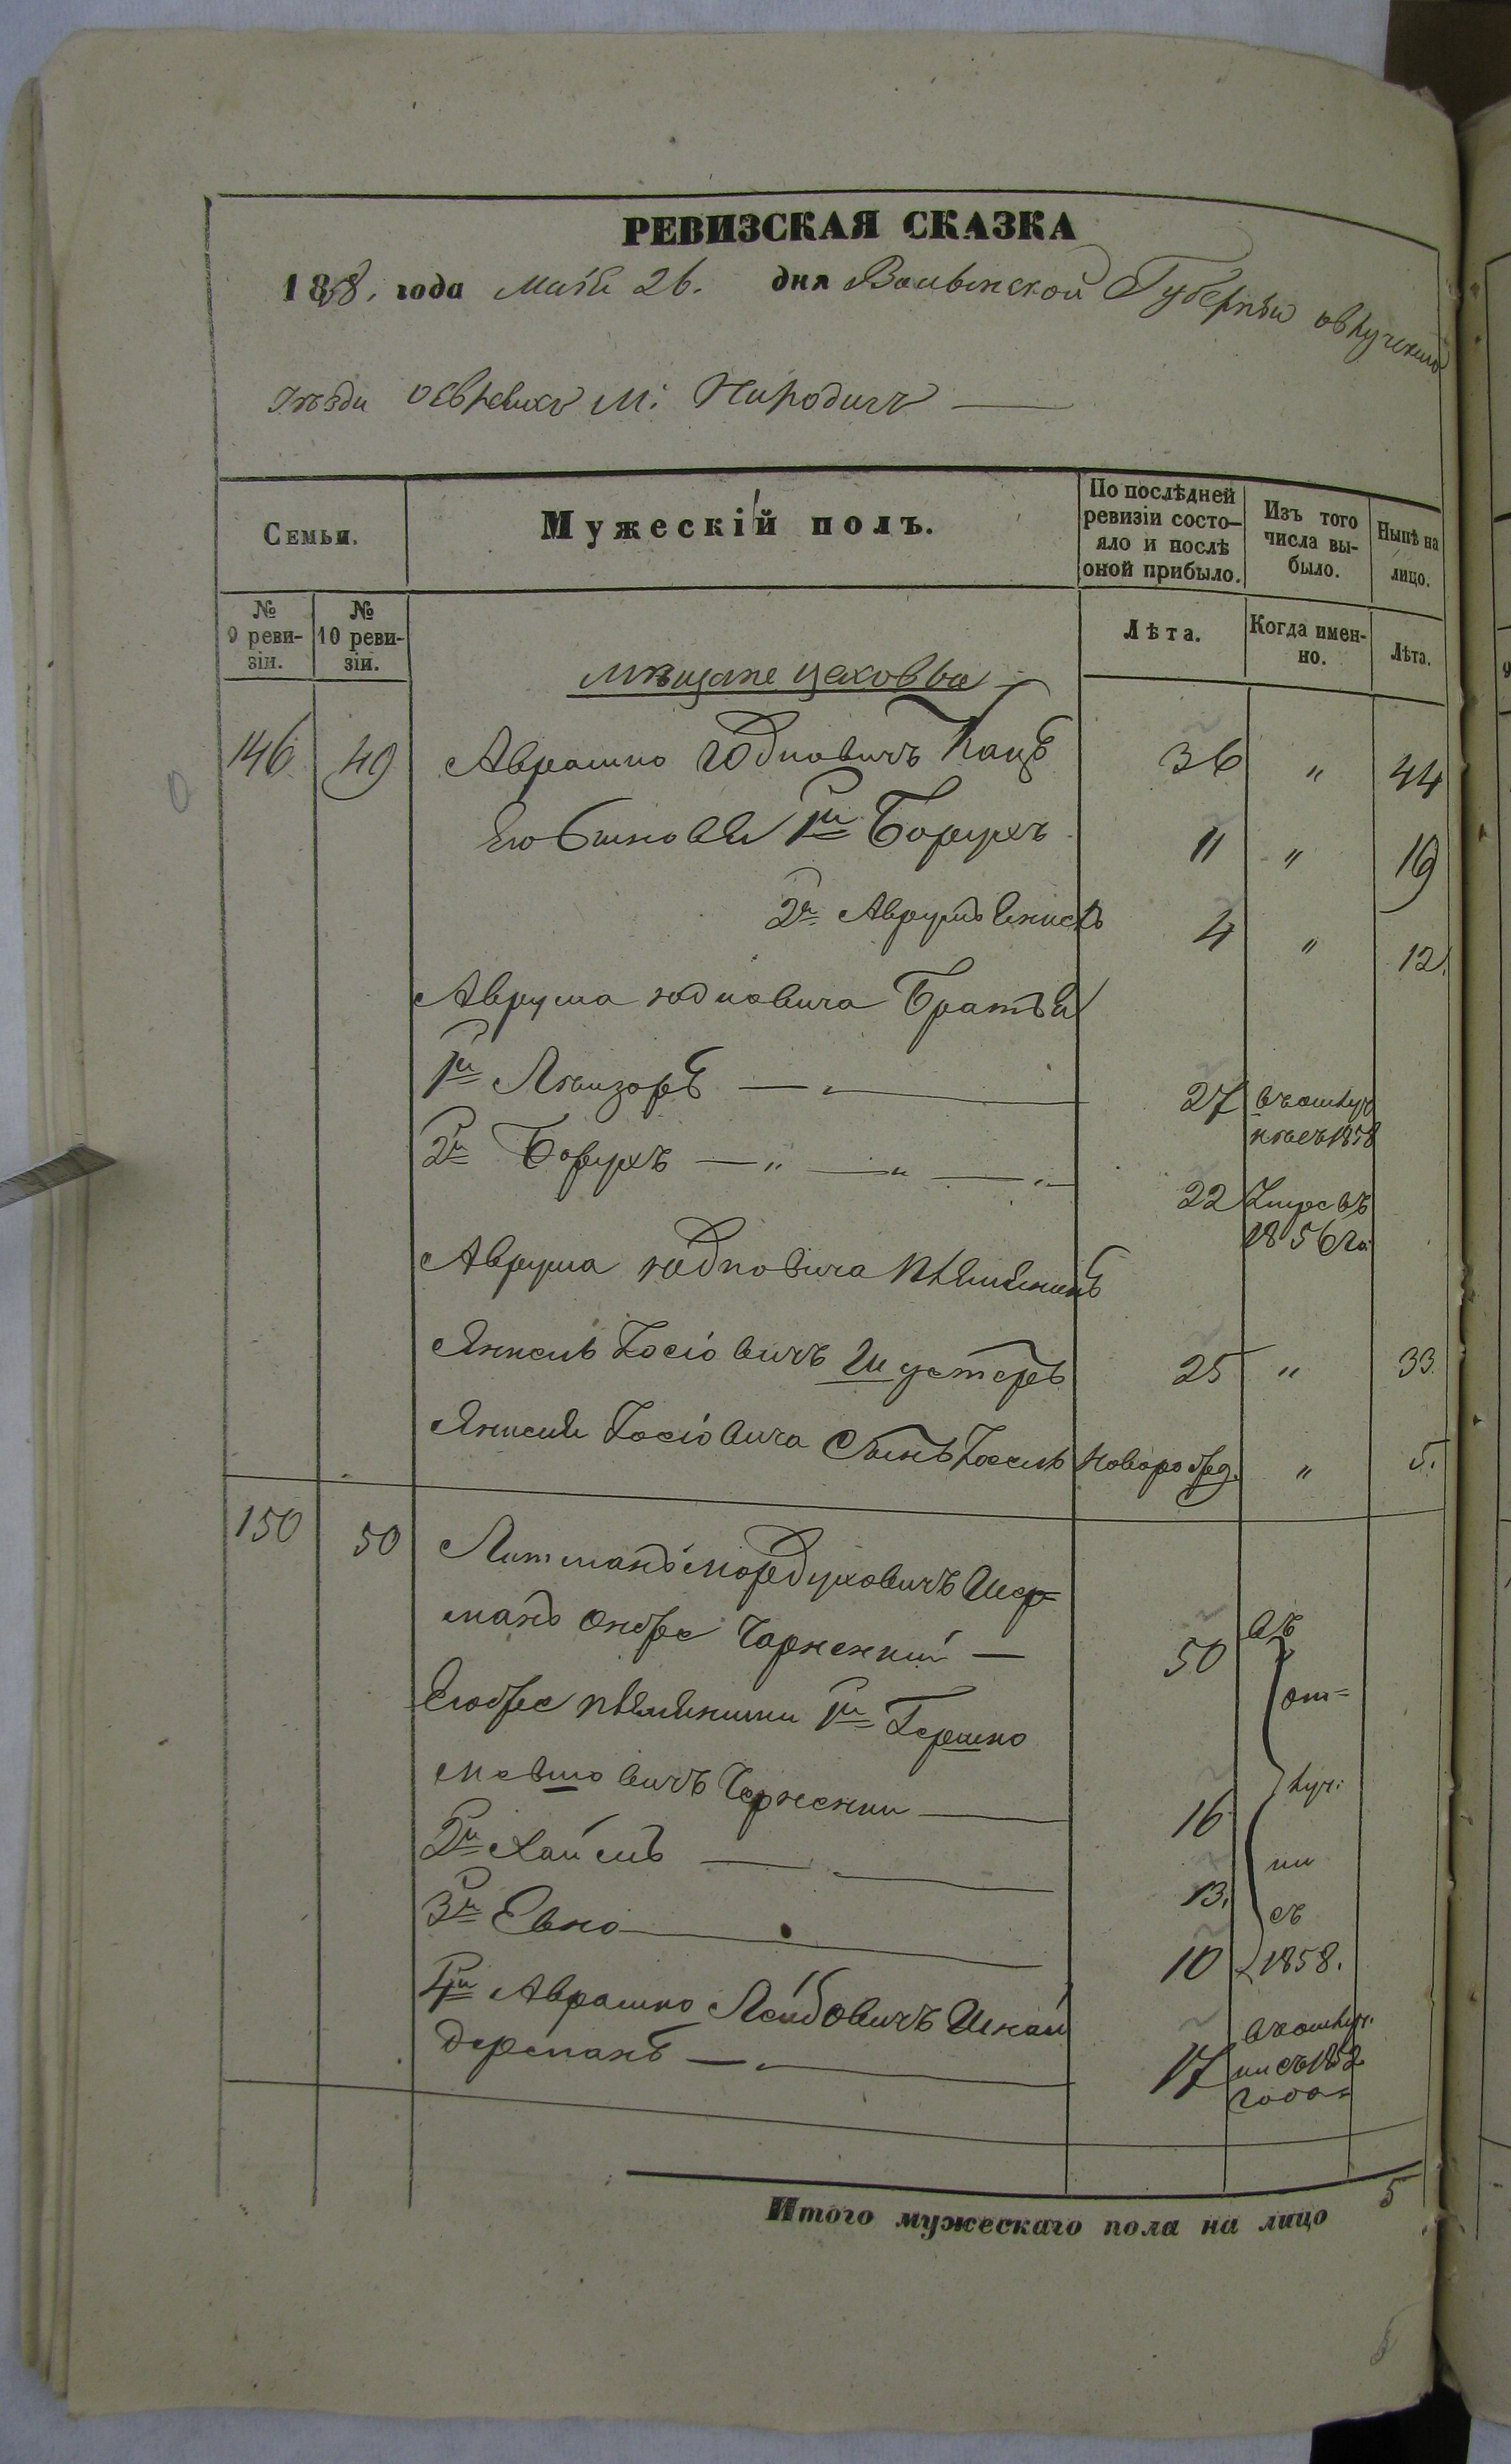 РЕВИЗСКАЯ СКАЗКА
1858. года Маія 26. дня Волынской Губерніи овручскаго
уѣзда о евреяхъ м: Народичъ
Семьи.
Мужескій полъ.
По послѣдней ревизіи состо-яло и послѣ оной прибыло.
Изъ того числа вы-было.
Нынѣ на лицо.
№ 9 реви-зіи.
№ 10 реви-зіи.
Лѣта.
Когда имен-но.
Лѣта.
мѣщане цеховые
146 49 Аврашко Юдковичъ Кацъ 36 " 44
Его Сыновья 1й Борухъ 11 " 19
2й Аврумъ 4 " 12.
Аврума юдковича Братья
1й Лейзоръ — " — 27 въ отлуч
кѣ съ 1858
2й Борухъ — " — " — " — 22 Умре въ
1856 го
Аврума юдковича племянникъ
Янкель Іосіовичъ Шустеръ 25 " 33.
Янкеля Іосіовича Сынъ Іосель новорожд. " 5.
150 50 Литманъ Мордуховичъ Шер=
манъ онже Чернскій — 50 въ
от=
Егоже племянники 1й Гершко
Мовшовичъ Чернскій — 16 луч:
2й Хаимъ — 13. ки
3й Евно — 10 съ
1858.
4й Аврашко Лейбовичъ Шнай
дерманъ — " — 17 въ отлуч.
ки съ 1852
года=
Итого мужескаго пола на лицо 5